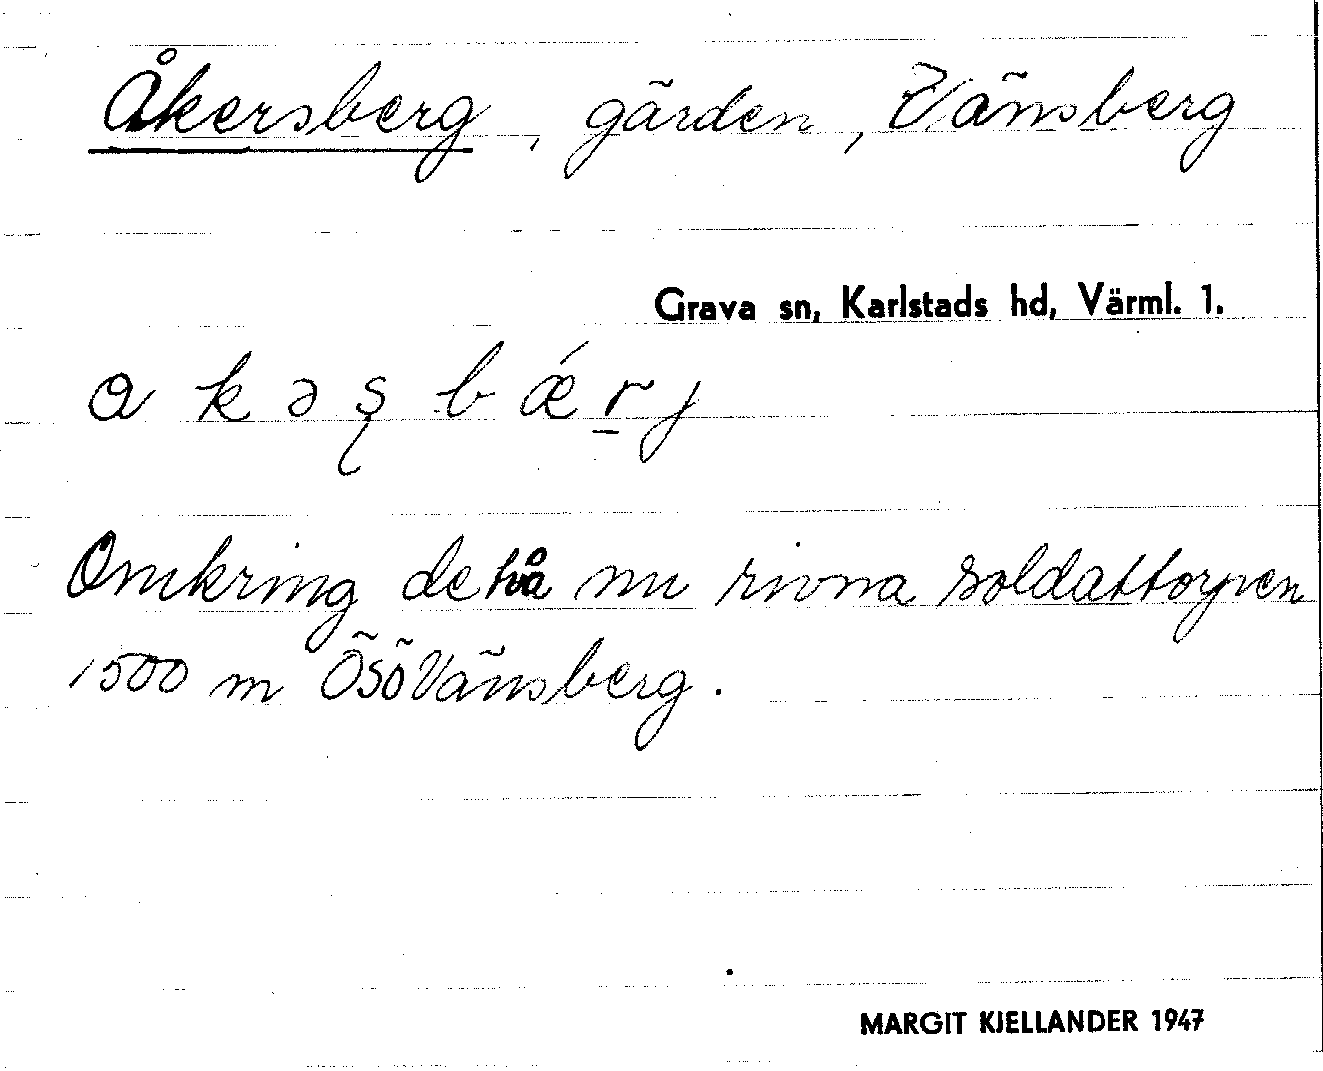 Åkersberg, gärden, Vänsberg
Grava sn, Karlstads hd, Värml. 1.
a k ə ʂ b ǽ r̲ j
Omkring de två nu rivna soldattorpen
1500 m ÖSÖ Vänsberg.
MARGIT KJELLANDER 1947